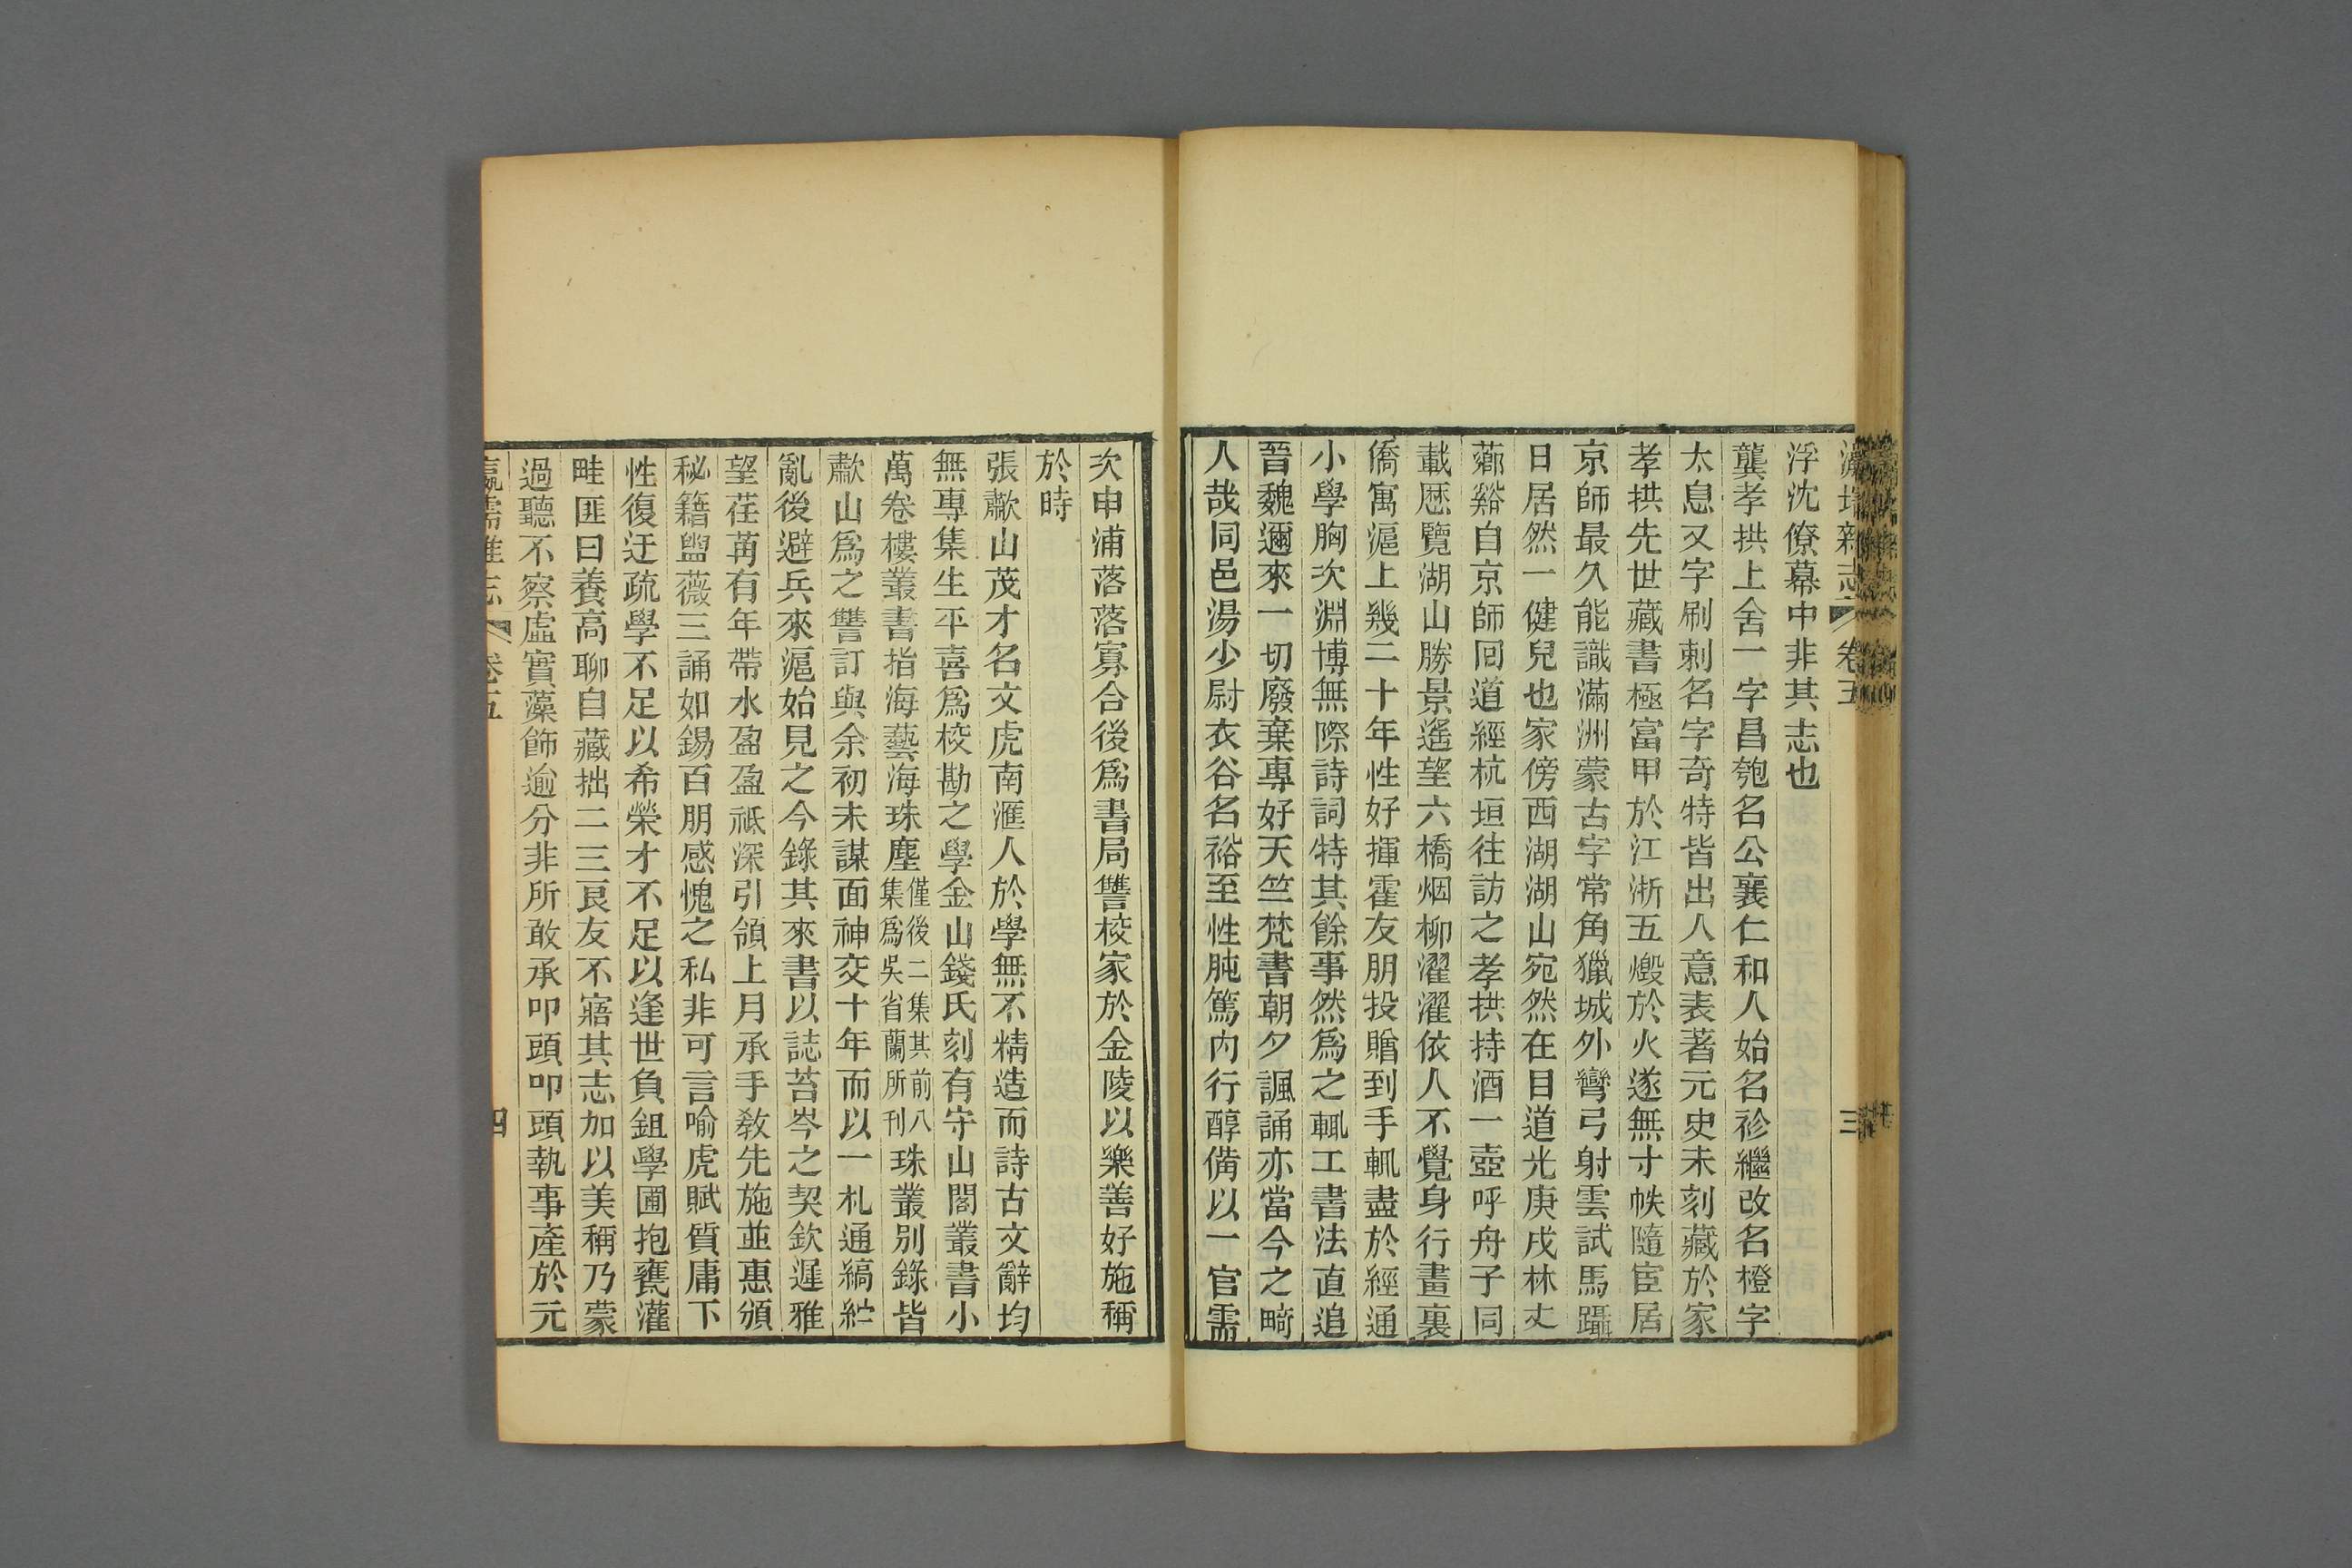 浮沈僚幕中非其志也
龔孝拱上舍一字昌匏名公襄仁和人始名袗繼改名橙字
太息又字刷刺名字奇特皆出人意表著元史未刻藏於家
孝拱先世藏書極富甲於江浙五燬於火遂無寸帙隨宦居
京師最久能識滿洲蒙古字常角獵城外彎弓射雲試馬躡
日居然一健兒也家傍西湖湖山宛然在目道光庚戌林丈
薌谿自京師回道經杭垣往訪之孝拱持酒一壺呼舟子同
載歷覽湖山勝景遙望六橋烟柳濯濯依人不覺身行畫裏
僑寓滬上幾二十年性好揮霍友朋投贈到手輒盡於經通
小學胸次淵博無際詩詞特其餘事然爲之輒工書法直追
晉魏邇來一切廢棄專好天竺梵書朝夕諷誦亦當今之畸
人哉同邑湯少尉衣谷名裕至性肫篤內行醇備以一官需
次申浦落落寡合後爲書局讐校家於金陵以樂善好施稱
於時
張歗山茂才名文虎南滙人於學無不精造而詩古文辭均
無專集生平喜爲校勘之學金山錢氏刻有守山閣叢書小
萬卷樓叢書指海藝海珠塵僅後二集其前八集爲吳省蘭所刊珠叢別錄皆
歗山爲之讐訂與余初未謀面神交十年而以一札通縞紵
亂後避兵來滬始見之今錄其來書以誌苔岑之契欽遲雅
望荏苒有年帶水盈盈祗深引領上月承手敎先施並惠頒
秘籍盥薇三誦如錫百朋感愧之私非可言喻虎賦質庸下
性復迂疏學不足以希榮才不足以逢世負鉏學圃抱甕灌
畦匪曰養高聊自藏拙二三良友不寤其志加以美稱乃蒙
過聽不察虛實藻飾逾分非所敢承叩頭叩頭執事產於元
卷五
四